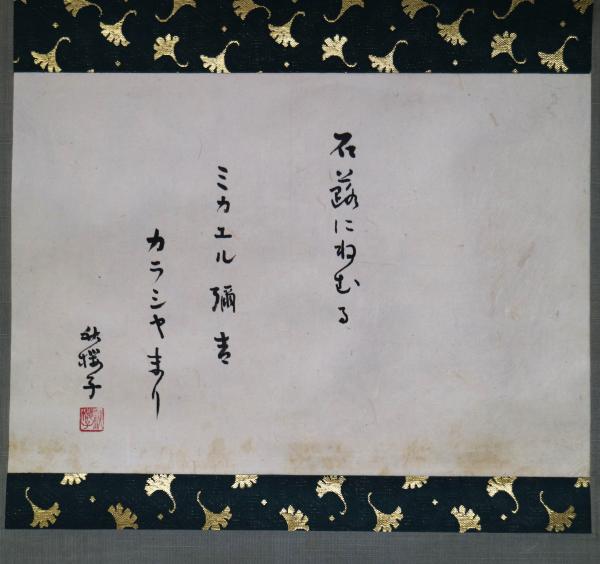 石蕗にねむる
ミカエル彌吉
カラシヤまり
秋櫻子